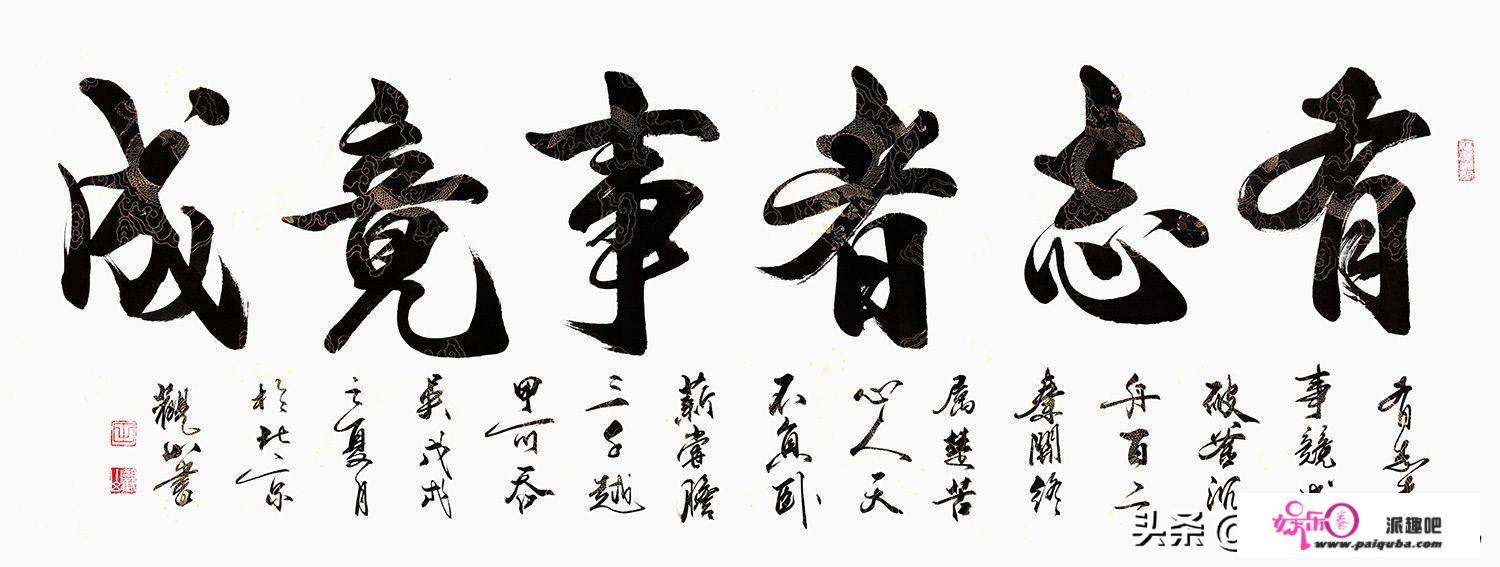 有志者事竟成
有志者
事競成
破釜沉
舟百二
秦關終
属楚苦
心人天
不負卧
薪嘗膽
三千越
甲可吞
吴戊戌
之夏月
於北京
觀山書
头条 @
娱乐卷 派趣吧
www.paiquba.com